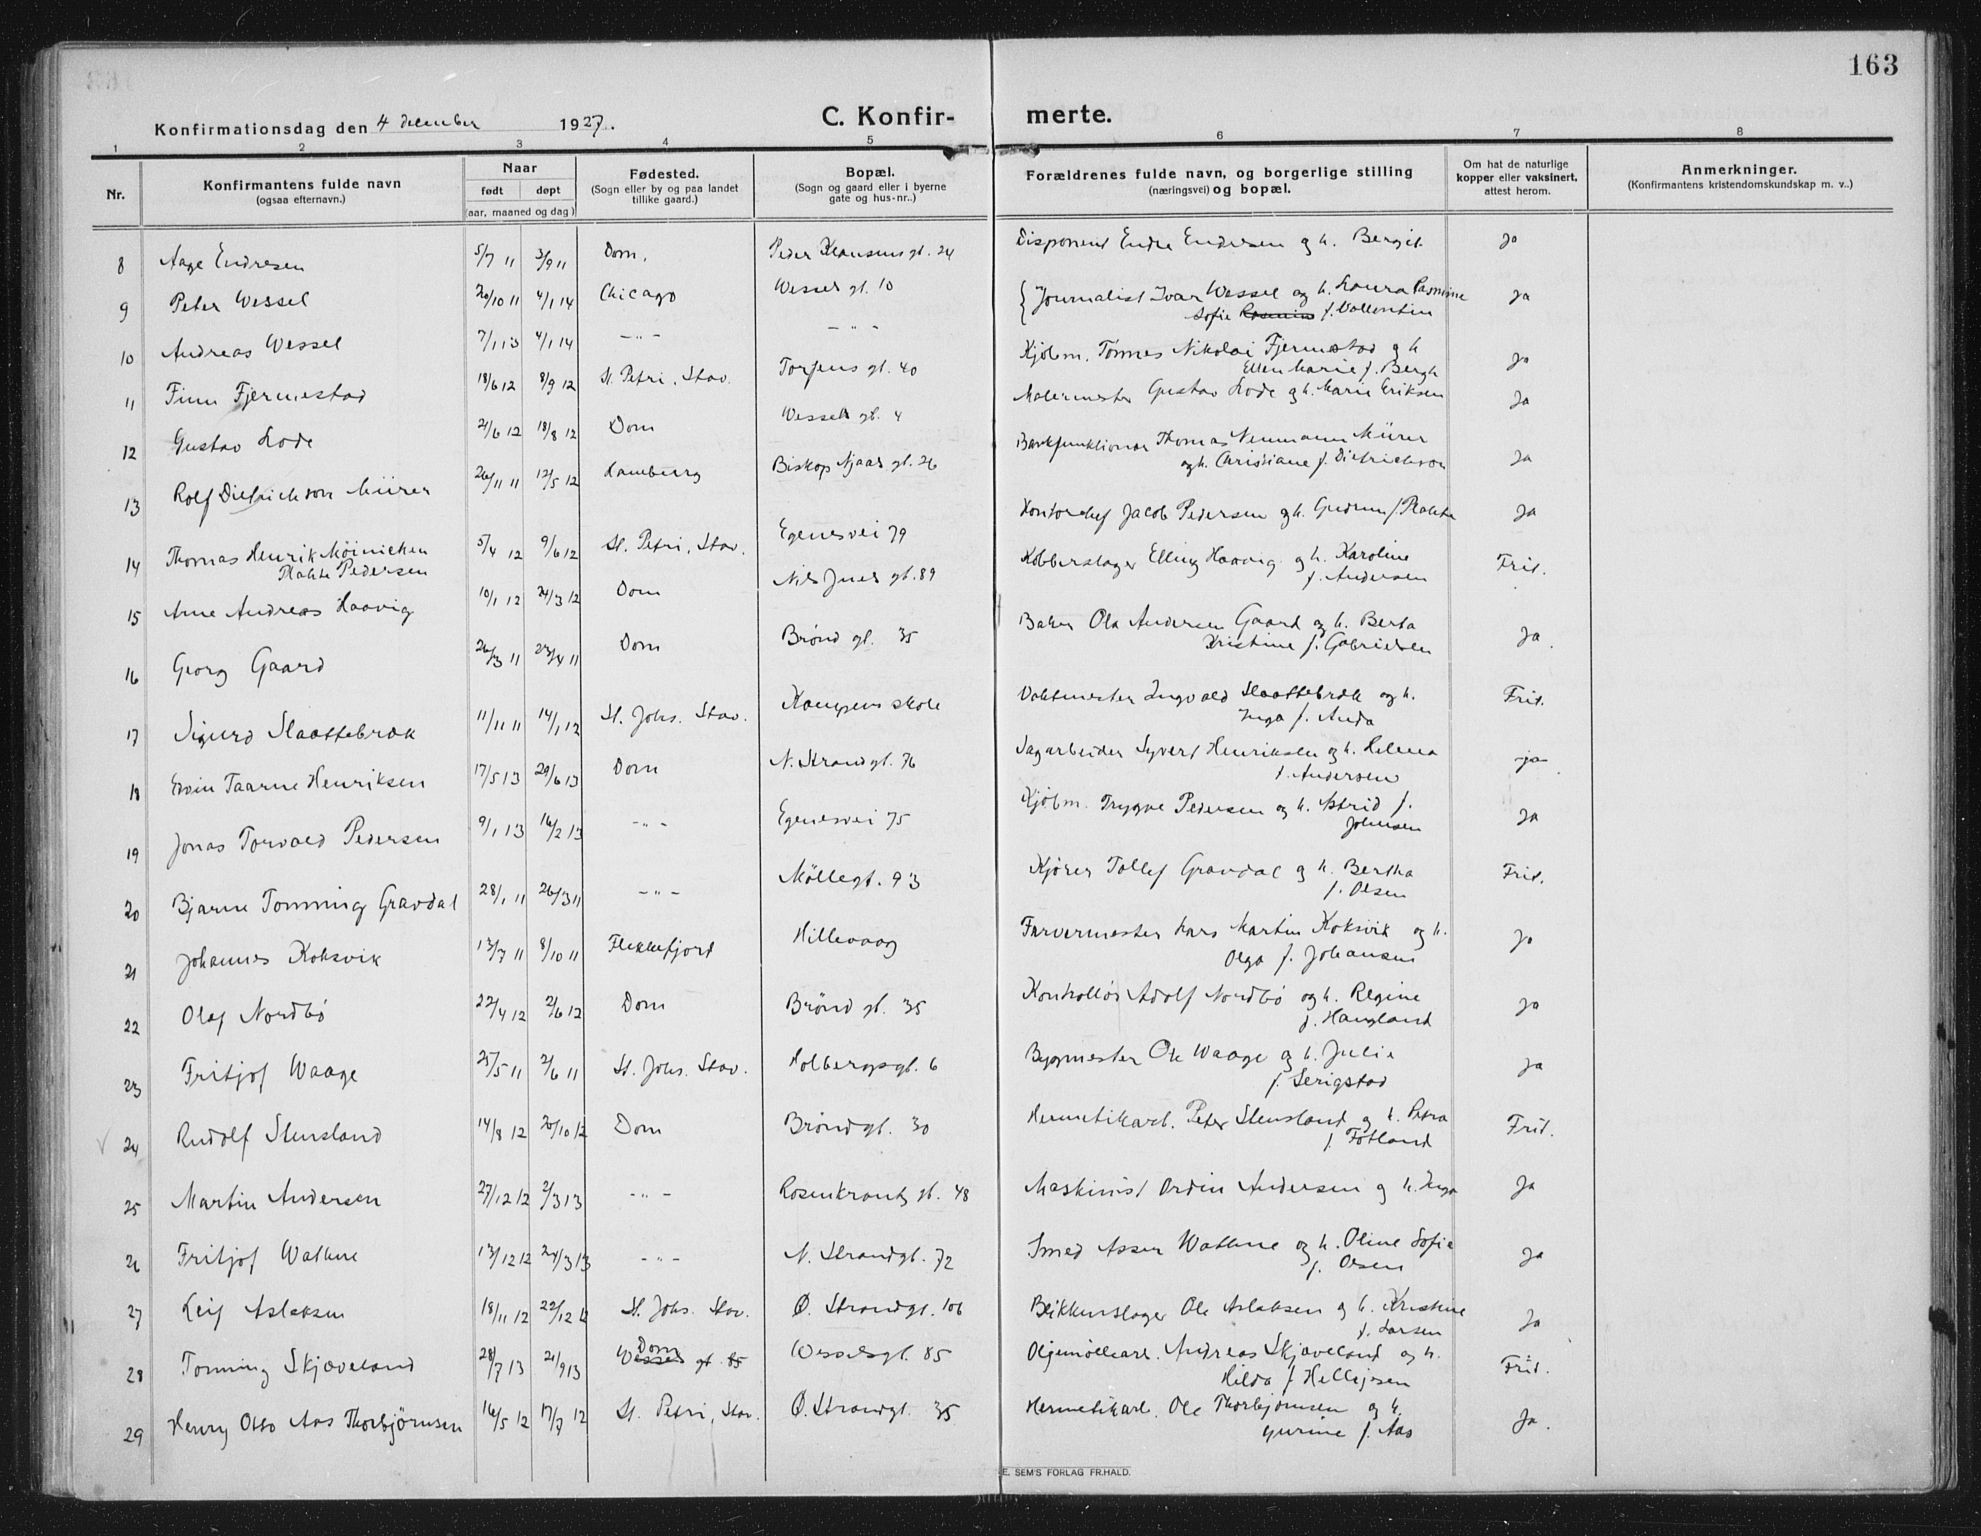 163
Konfirmationsdag den 4 december 1927.
C. Konfir- merte.
1 2 3 4 5 6 7 8
Nr.
Konfirmantens fulde navn
(ogsaa efternavn.)
Naar
født døpt
(aar, maaned og dag)
Fødested.
(Sogn eller by og paa landet
tillike gaard.)
Bopæl.
(Sogn og gaard eller i byerne
gate og hus-nr..)
Forældrenes fulde navn, og borgerlige stilling
(næringsvei) og bopæl.
Om hat de naturlige
kopper eller vaksinert,
attest herom.
Anmerkninger.
(Konfirmantens kristendomskundskap m. v..)
8 Aage Endresen 5/7 11 3/9 11 Dom. Peder Klausens gt. 24 Disponent Endre Endresen og h. Bergit Ja
9 Peter Wessel 20/10 11 4/1 14 Chicago Wessels gt. 10 { Journalist Ivar Wessel og h. Laura Rasmine Ja
Sofie f. Vallentin
10 Andreas Wessel 7/1 13 4/1 14 -"- -"-
11 Finn Fjermestad 18/6 12 8/9 12 St. Petri, Stav. Torfeus gt. 40 Kjøbm. Tønnes Nikolai Fjermestad og h Ja
Ellen Marie f. Bergh
12 Gustav Lode 21/6 12 18/8 12 Dom Wessels gt. 4 Malermester Gustav Lode og h. Marie Eriksen Ja
13 Rolf Dietrichson Mürer 26/11 11 12/5 12 Biskop Njaals gt. 26 Bankfunktionær Thomas Neumann Mürer Ja
og h. Christiane f. Dietrichson
14 Thomas Henrik Møinichen 5/4 12 9/6 12 St. Petri, Stav. Egenesvei 79 Kontorchef Jacob Pedersen og h. Gudrun f. Plahte Ja
Plahte Pedersen
15 Arne Andreas Haavig 10/1 12 24/3 12 Dom Nils Juels gt. 89 Kobberslager Elling Haavig og h. Karoline Frit.
f. Andersen
16 Georg Gaard 26/3 11 23/4 11 Dom Brønd gt. 35 Baker Ola Andersen Gaard og h. Berta Ja.
Kristine f. Gabrielsen
17 Sigurd Slaattebræk 11/11 11 14/1 12 St. Johs. Stav. Kampens skole Vaktmester Ingvald Slaattebræk og h. Frit.
Inga f. Anda
18 Edvin Taarne Henriksen 17/5 13 29/6 13 Dom N. Strandgt. 76 Sagarbeider Syvert Henriksen og h. Helena ja
f. Andersen
19 Jonas Torvald Pedersen 9/1 13 16/2 13 -"- Egenesvei 75 Kjøbm. Trygve Pedersen og h. Astrid f. Ja
Johnsen
20 Bjarne Tønning Gravdal 28/1 11 26/3 11 -"- Møllegt. 93 Kjører Tollef Gravdal og h. Bertha Frit.
f. Olsen
21 Johannes Koksvik 13/7 11 8/10 11 Flekkefjord Hillevaag Farvermester Lars Martin Koksvik og h. Ja
Olga f. Johansen
22 Olaf Nordbø 22/4 12 2/6 12 Dom Brønd gt. 35 Kontrollør Adolf Nordbø og h. Regine Ja
f. Haugland
23 Fritjof Waage 25/5 11 2/6 11 St. Johs. Stav. Holbergsgt. 6 Bygmester Ole Waage og h. Julie Ja
f. Serigstad
24 Rudolf Stensland 14/8 12 20/10 12 Dom Brøndgt. 30 Hermetikarb. Peter Stensland og h. Petra Frit.
f. Fotland
25 Martin Andersen 27/12 12 2/3 13 -"- Rosenkrantz gt. 48 Maskinist Ordin Andersen og h. Inga Ja
26 Fritjof Wathne 13/12 12 24/3 13 -"- N. Strandgt. 72 Smed Asser Wathne og h. Oline Sofie Ja
f. Olsen
27 Leif Aslaksen 18/11 12 22/12 12 St. Johs. Stav. Ø. Strandgt. 106 Blikkenslager Ole Aslaksen og h. Kristine Ja
f. Larsen
28 Tønning Skjæveland 28/7 13 21/9 13 Wessels gt. 85 Dom Wesselsgt. 85 Oljemøllearb. Andreas Skjæveland og h. Frit.
Hilda f. Hellesen
29 Henry Otto Aas Thorbjørnsen 16/5 12 17/7 12 St. Petri, Stav. Ø. Strandgt. 35 Hermetikarb. Ole Thorbjørnsen og h. Ja.
Gurine f. Aas
E. SEM'S FORLAG FR.HALD.